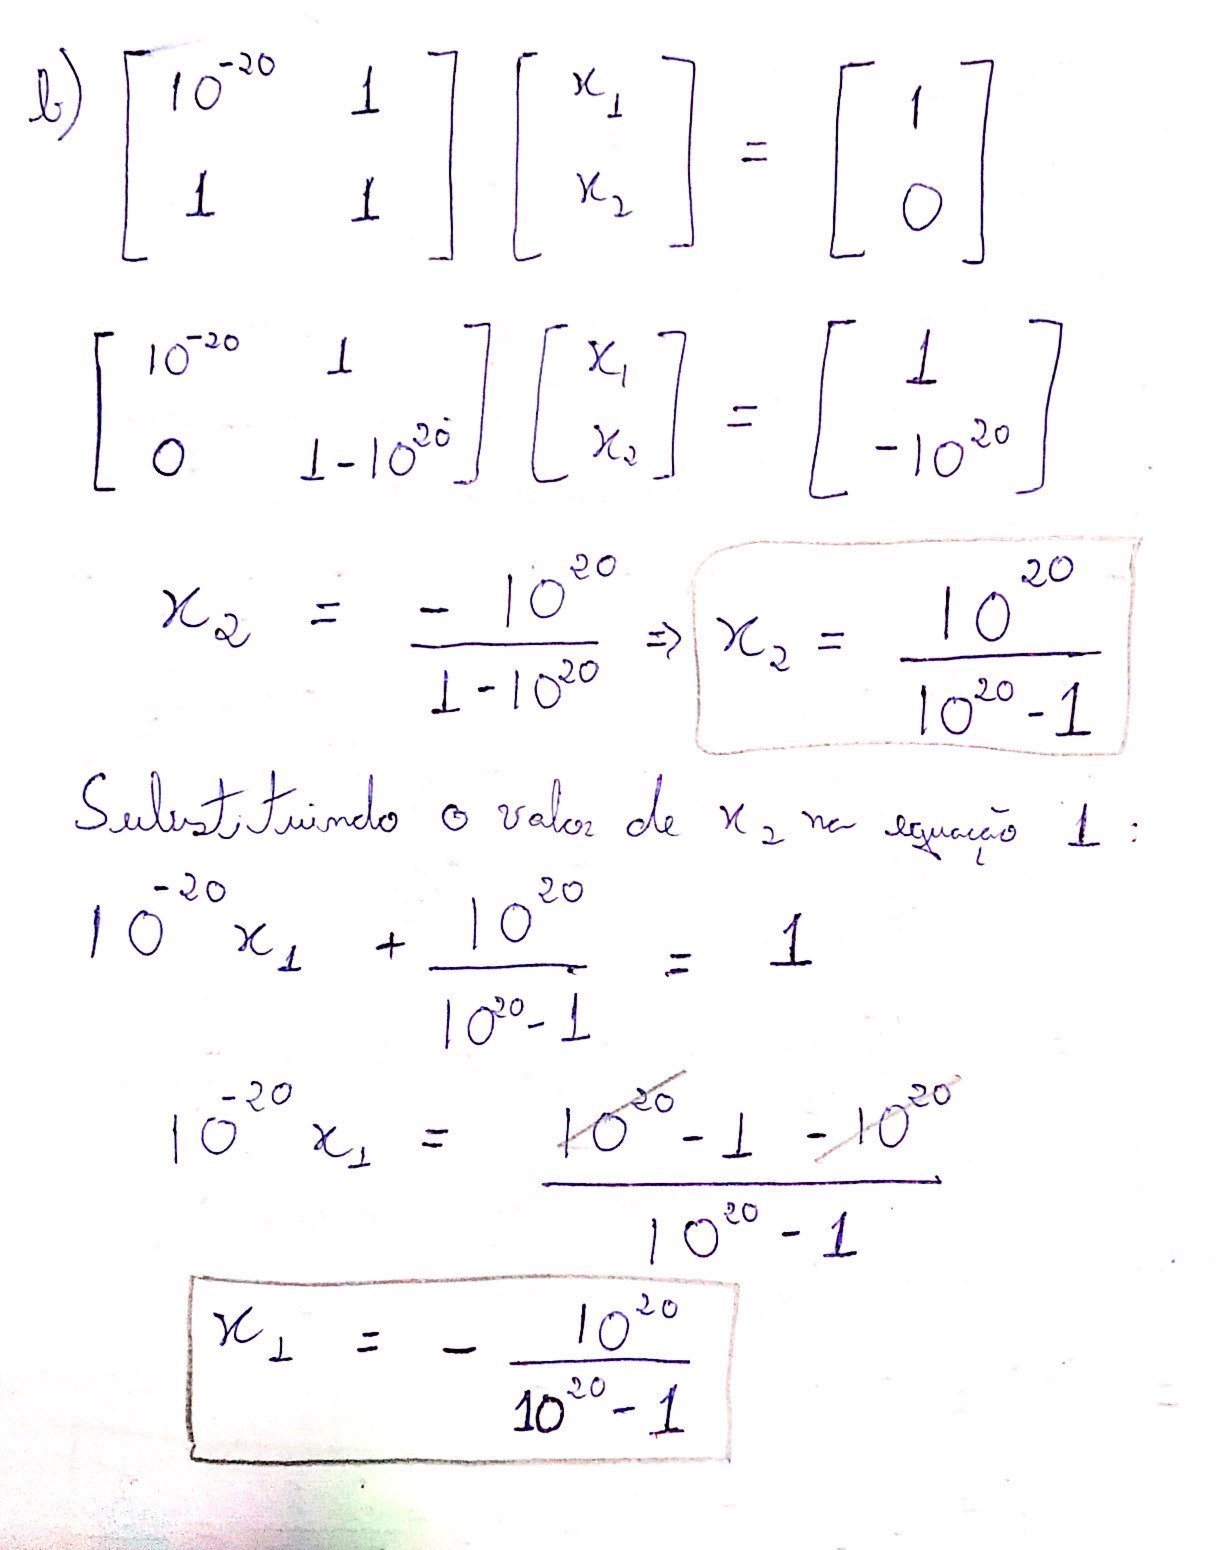 b) [ 10^-20 1 ; 1 1 ] [ x_1 ; x_2 ] = [ 1 ; 0 ]
[ 10^-20 1 ; 0 1-10^20 ] [ x_1 ; x_2 ] = [ 1 ; -10^20 ]
x_2 = - 10^20 / (1-10^20) => x_2 = 10^20 / (10^20-1)
Substituindo o valor de x_2 na equação 1 :
10^-20 x_1 + 10^20 / (10^20-1) = 1
10^-20 x_1 = (10^20 - 1 - 10^20) / (10^20 - 1)
x_1 = - 10^20 / (10^20-1)